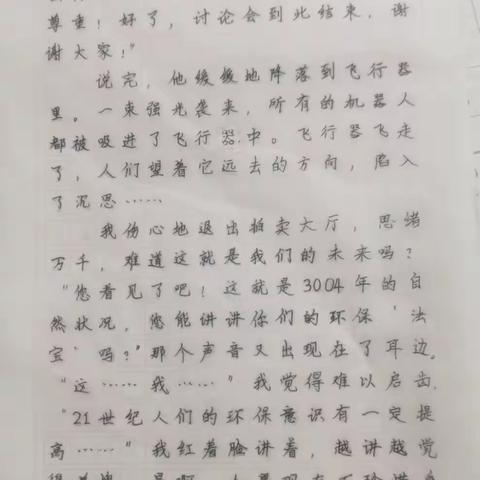 尊重！好了，讨论会到此结束，谢
谢大家！"
说完，他缓缓地降落到飞行器
里。一束强光袭来，所有的机器人
都被吸进了飞行器中。飞行器飞走
了，人们望着它远去的方向，陷入
了沉思……
我伤心地退出拍卖大厅，思绪
万千，难道这就是我们的未来吗？
"您看见了吧！这就是3004年的自
然状况，您能讲讲你们的环保'法
宝'吗？"那个声音又出现在了耳边。
"这……我……"我觉得难以启齿。
"21世纪人们的环保意识有一定提
高……"我红着脸讲着，越讲越觉